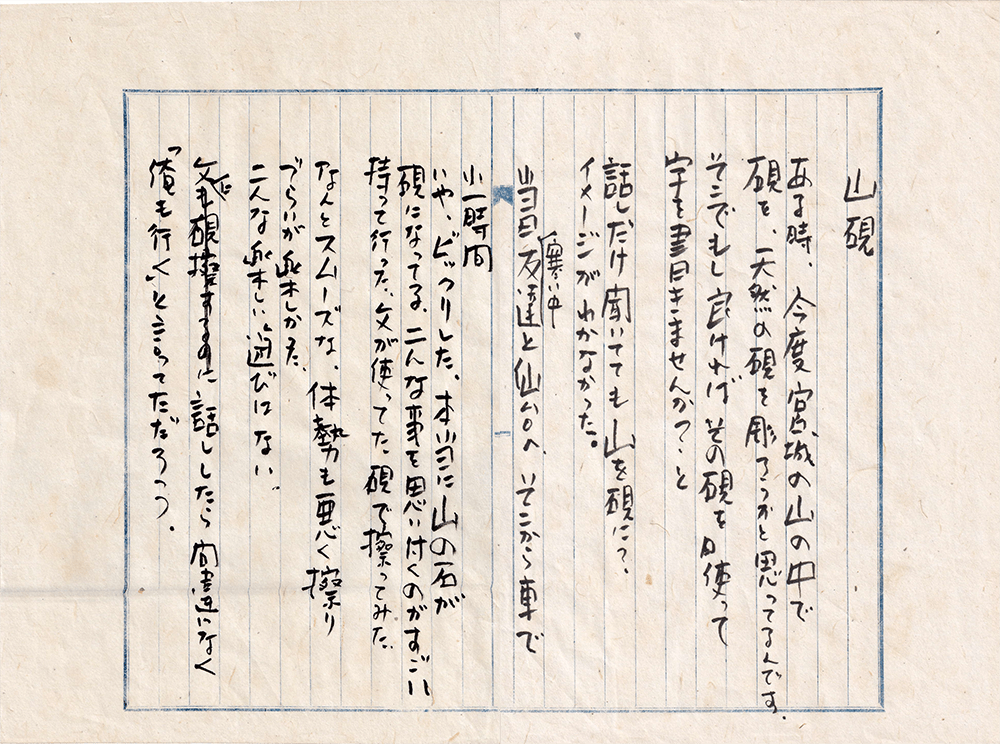 山硯
ある時、今度宮城の山の中で
硯を、天然の硯を彫ろうかと思ってるんです。
そこでもし良ければその硯を使って
字を書きませんか?と
話しだけ聞いてても山を硯に?、
イメージがわかなかった。
当日寒い中友達と仙台へ、そこから車で
小一時間
いや、ビックリした、本当に山の石が
硯になってる、こんな事を思い付くのがすごい
持って行った、父が使ってた硯で擦ってみた、
なんとスムーズな、体勢も悪く擦り
づらいが楽しかった、
こんな楽しい遊びはない、
父に話ししたら間違いなく
「俺も行く」と言ってただろうっ。